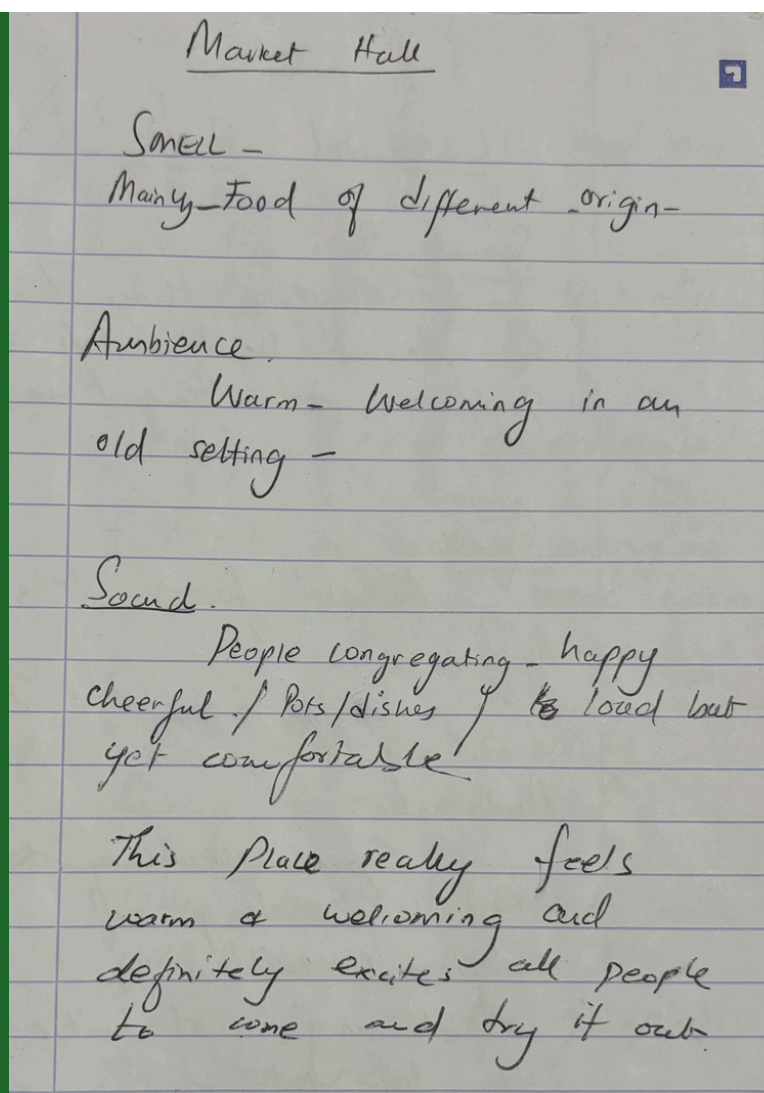 Market Hall
SMELL -
Mainly - Food of different - origin -
Ambience.
Warm - Welcoming in an
old setting -
Sound.
People congregating - happy
cheerful / Pots / dishes / loud but
yet comfortable
This Place really feels
warm & welcoming and
definitely excites all people
to come and try it out.